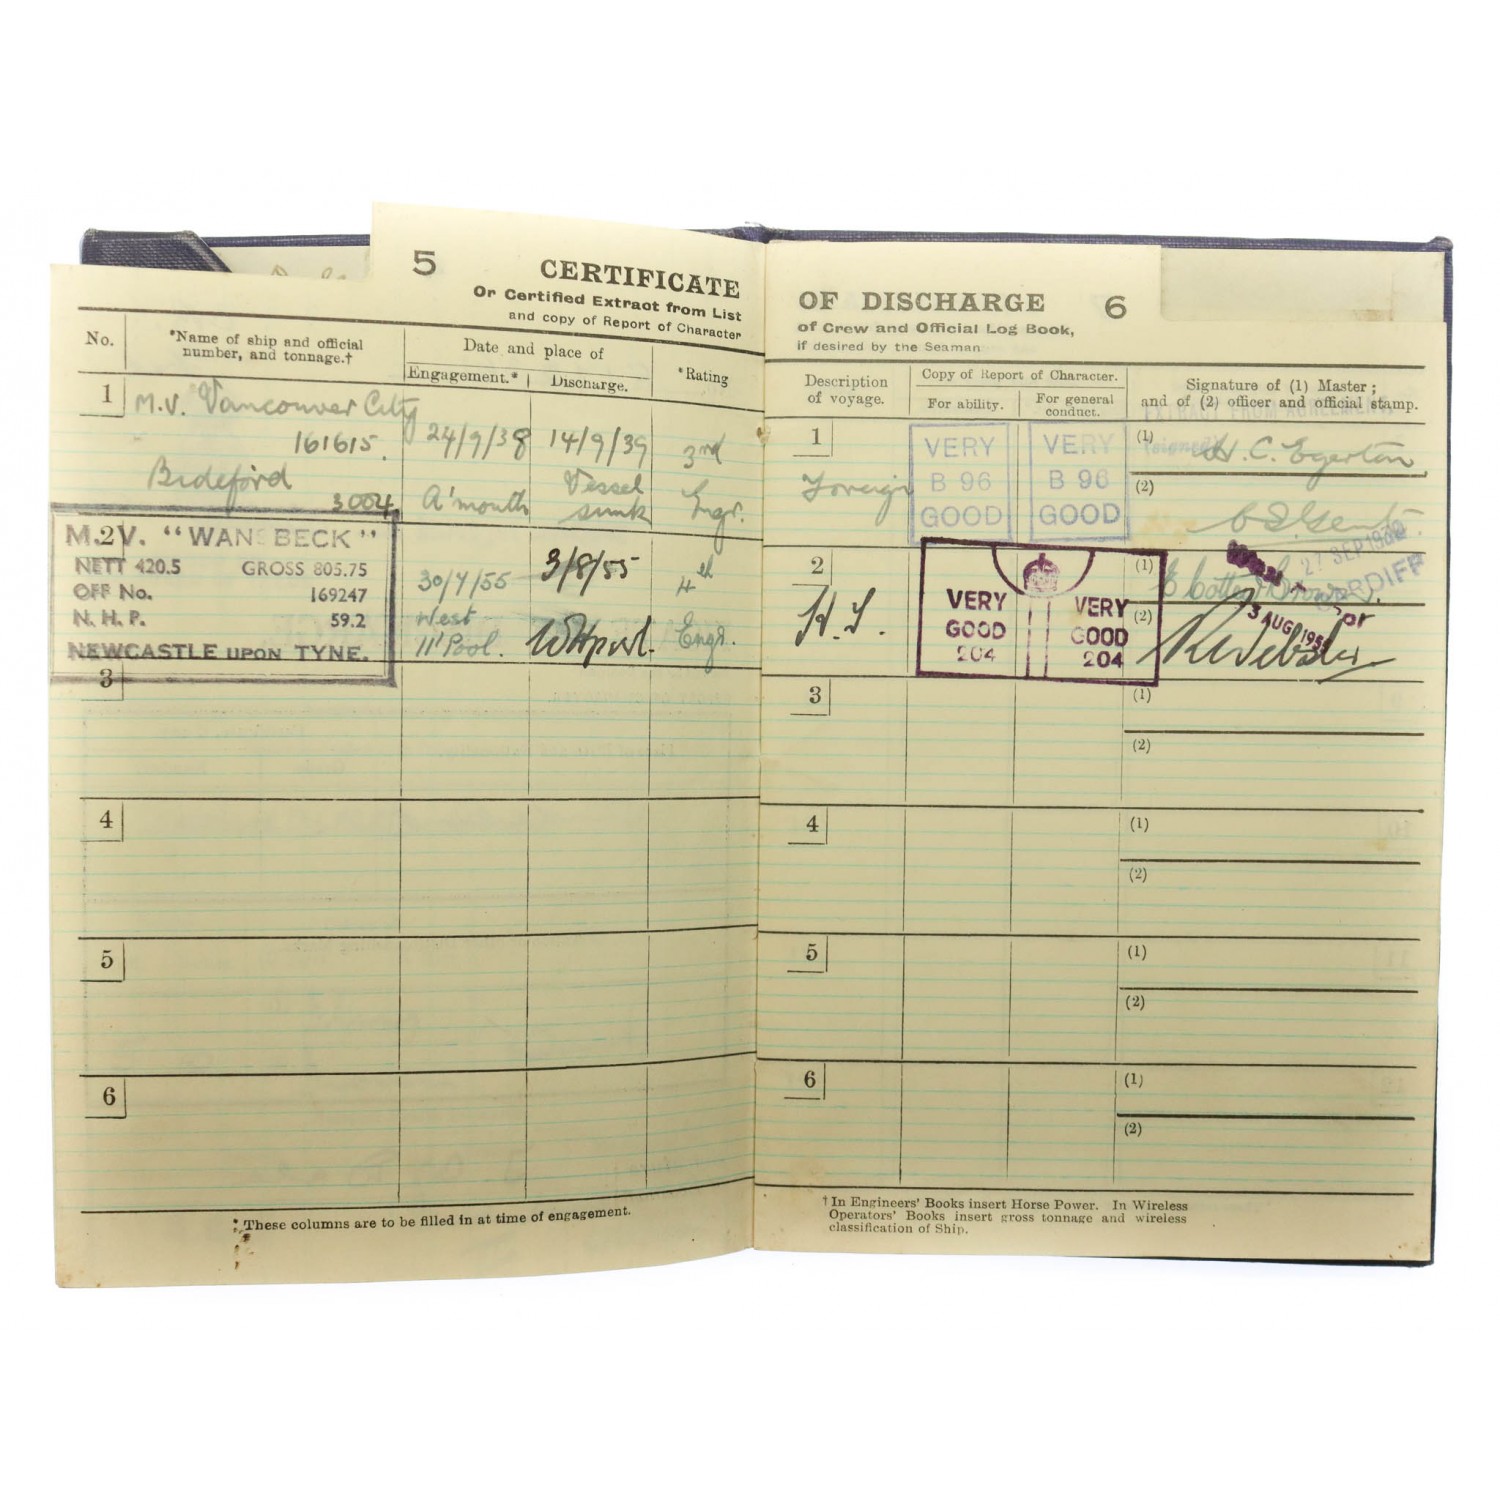 5 CERTIFICATE
Or Certified Extract from List
and copy of Report of Character
No.
*Name of ship and official
number, and tonnage.†
Date and place of
Engagement.*
Discharge.
*Rating
1
M.V. Vancouver City
161615.
Bideford
3004
24/9/38
A'mouth
14/9/39
Vessel
sunk
3rd
Engr.
2
M.V. "WANSBECK"
NETT 420.5 GROSS 805.75
OFF No. 169247
N. H. P. 59.2
NEWCASTLE UPON TYNE.
30/7/55
West
H'Pool.
3/8/55
W H'pool.
4th
Engr.
3
4
5
6
* These columns are to be filled in at time of engagement.
OF DISCHARGE 6
of Crew and Official Log Book,
if desired by the Seaman
Description
of voyage.
Copy of Report of Character.
For ability.
For general
conduct.
Signature of (1) Master;
and of (2) officer and official stamp.
EXTRACT FROM AGREEMENT.
1
Foreign
VERY
B 96
GOOD
VERY
B 96
GOOD
(1)
(signed) H. C. Egerton
(2)
27 SEP 19
CARDIFF
2
H.T.
VERY
GOOD
204
VERY
GOOD
204
(1)
(2)
3 AUG 195
for
R Webster
3
(1)
(2)
4
(1)
(2)
5
(1)
(2)
6
(1)
(2)
† In Engineers' Books insert Horse Power. In Wireless
Operators' Books insert gross tonnage and wireless
classification of Ship.